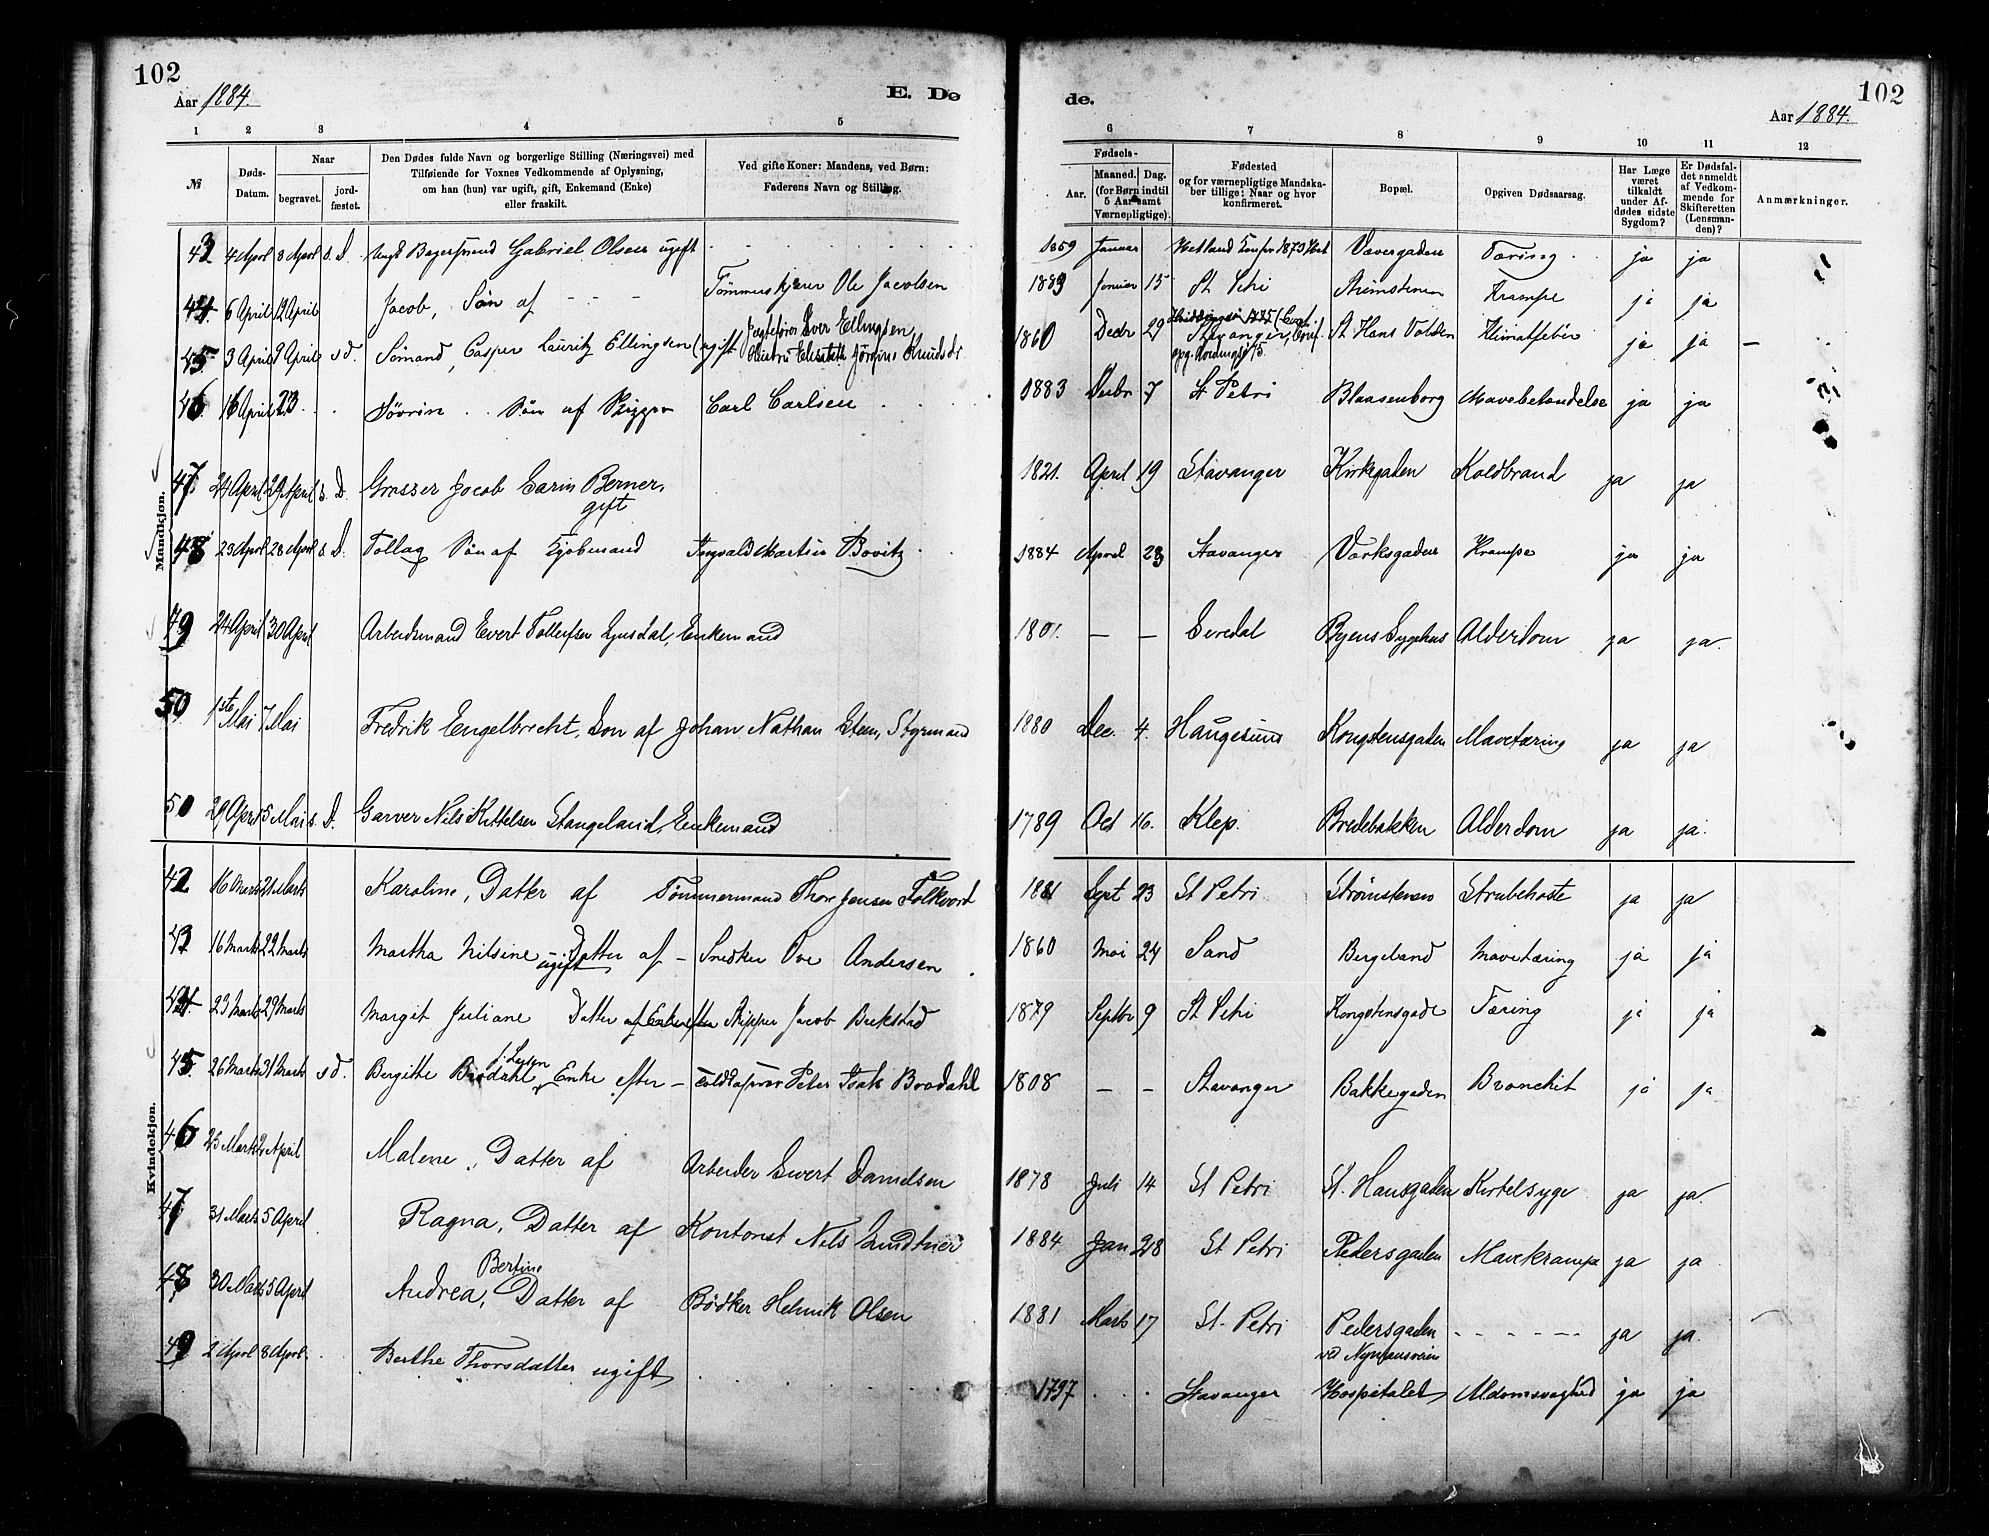 102
Aar 1884.
E. Dø
1 2 3 4 5
№ Døds-Datum. Naar begravet. jord-fæstet. Den Dødes fulde Navn og borgerlige Stilling (Næringsvei) med Tilføiende for Voxnes Vedkommende af Oplysning, om han (hun) var ugift, gift, Enkemand (Enke) eller fraskilt. Ved gifte Koner: Mandens, ved Børn: Faderens Navn og Stilling.
Mandkjøn.
43 4 April 8 April s. D. Gabriel Olsen ugift
44. 6 April 12 April Jacob, Søn af - - - Ole Jacobsen
45 3 April 9 April s d. Sømand, Casper Lauritz Ellingsen (ugift Iver Ellingsen
46 16 April 23 Søvrin . . Søn af Skipper Carl Carlsen
47 24 April 29 April s. D. Grosser Jacob Berner,
gift
48 23 April 28 April s D. Tollag Søn af Kjøbmand Ingvald Martin Bovitz
49 24 April 30 April Arbeidsmand Evert Tollefsen Lyusdal, Enkemand
50 1ste Mai 7 Mai Fredrik Engelbrecht, Søn af Johan Nathan Steen, Styrmand
50 29 April 5 Mai s. D. Garver Nils Kittelsen Stangeland, Enkemand
Kvindekjøn.
42 16 Marts 21 Marts Karoline, Datter af Tømmermand Thor Jensen Folkvord
43 16 Marts 22 Marts Martha Nilsine Datter af - Snedker Ove Andersen
ugift
44. 23 Marts 29 Marts Margit Juliane Datter af Enke efter Skipper Jacob Bukstad
45. 26 Marts 31 Marts s d. Bergitte Brodahl Enke efter - Peter Isak Brodahl
46 25 Marts 2 April Malene, Datter af Arbeider Sivert Danielsen
47 31 Marts 5 April Ragna, Datter af Kontorist Nils Lindtner
Bertine
48 30 Marts 5 April Andrea, Datter af Bødker Helmik Olsen
49 2 April 8 April Berthe Thorsdatter ugift
de.
102
Aar 1884.
6 7 8 9 10 11 12
Fødsels- Aar. Maaned. Dag. (for Børn indtil 5 Aar samt Værnepligtige). Fødested og for værnepligtige Mandskaber tillige: Naar og hvor konfirmeret. Bopæl. Opgiven Dødsaarsag. Har Læge været tilkaldt under Afdødes sidste Sygdom? Er Dødsfaldet anmeldt af Vedkommende for Skifteretten (Lensmanden)? Anmærkninger.
1859 Januar Hetland Vævergaden Tæring ja ja
1883 Januar 15 St Petri Strømstenen Krampe ja ja
1860 Decbr 29 Stavanger St Hans Volden Klimatfeber ja ja -
1883 Decbr 7 St Petri Blaasenborg Mavebetændelse ja ja
1821. April 19 Stavanger Kirkgaden Koldbrand ja ja
1884 April 23 Stavanger Værksgaden Krampe ja ja
1801. - - Byens Sygehus Alderdom ja ja.
1880 Dec. 4. Haugesund Kongstensgaden Mavetæring ja ja
1789 Oct 16. Klep. Bredebakken Alderdom ja ja.
1881 Sept 23 St Petri Strømstenen Strubehoste ja ja
1860 Mai 24 Sand Bergeland Mavetæring ja ja
1879 Septbr 9 St Petri Kongstensgade Tæring ja ja
1808 - - Stavanger Bakkegaden Bronchit ja ja
1878 Juli 14 St Petri St. Hansgaden Kirtelsyge ja ja.
1884 Jan 28 St Petri Pedersgaden Mavekrampe ja ja
1881 Marts 17 St. Petri Pedersgaden - - - - - - ja ja.
1797 . . . Stavanger Hospitalet Aldomsvaghed ja ja